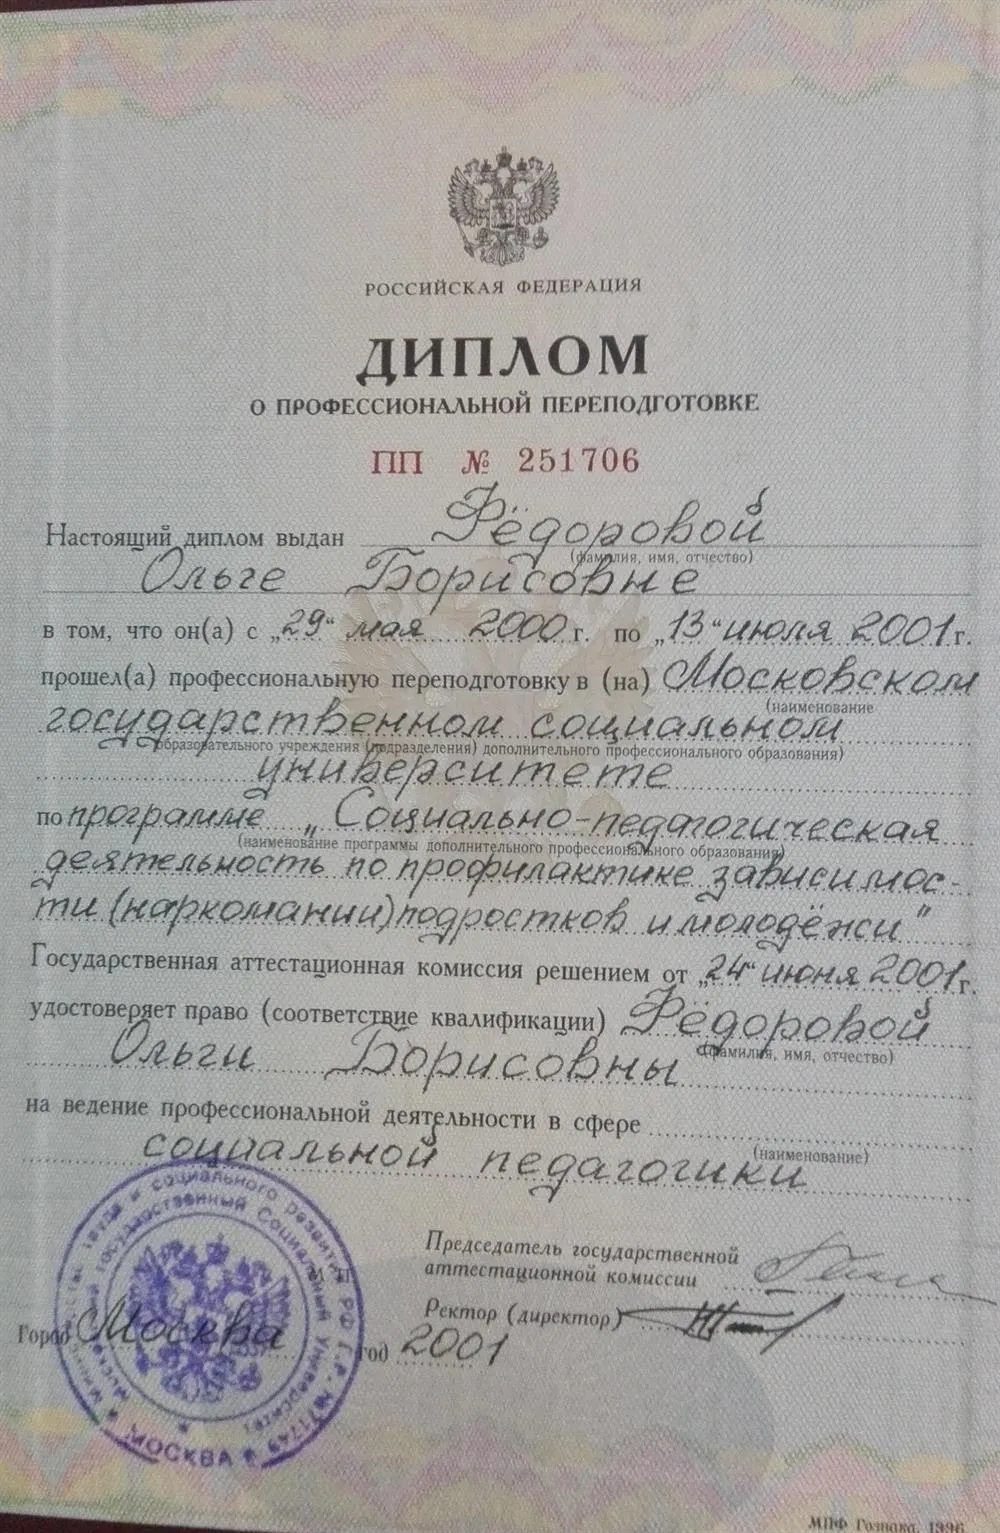 РОССИЙСКАЯ ФЕДЕРАЦИЯ
ДИПЛОМ
О ПРОФЕССИОНАЛЬНОЙ ПЕРЕПОДГОТОВКЕ
ПП № 251706
Настоящий диплом выдан Фёдоровой
(фамилия, имя, отчество)
Ольге Борисовне
в том, что он(а) с „29“ мая 2000 г. по „13“ июля 2001 г.
прошел(а) профессиональную переподготовку в (на) Московском
(наименование
государственном социальном
образовательного учреждения (подразделения) дополнительного профессионального образования)
университете
по программе „Социально-педагогическая
(наименование программы дополнительного профессионального образования)
деятельность по профилактике зависимос-
ти (наркомании) подростков и молодёжи"
Государственная аттестационная комиссия решением от „24“ июня 2001 г.
удостоверяет право (соответствие квалификации) Фёдоровой
(фамилия, имя, отчество)
Ольги Борисовны
на ведение профессиональной деятельности в сфере
(наименование)
социальной педагогики
Председатель государственной
аттестационной комиссии
Ректор (директор)
Город Москва год 2001
труда и социального развития РФ
государственный Социальный Университет
МОСКВА
МПФ Гознака. 1996